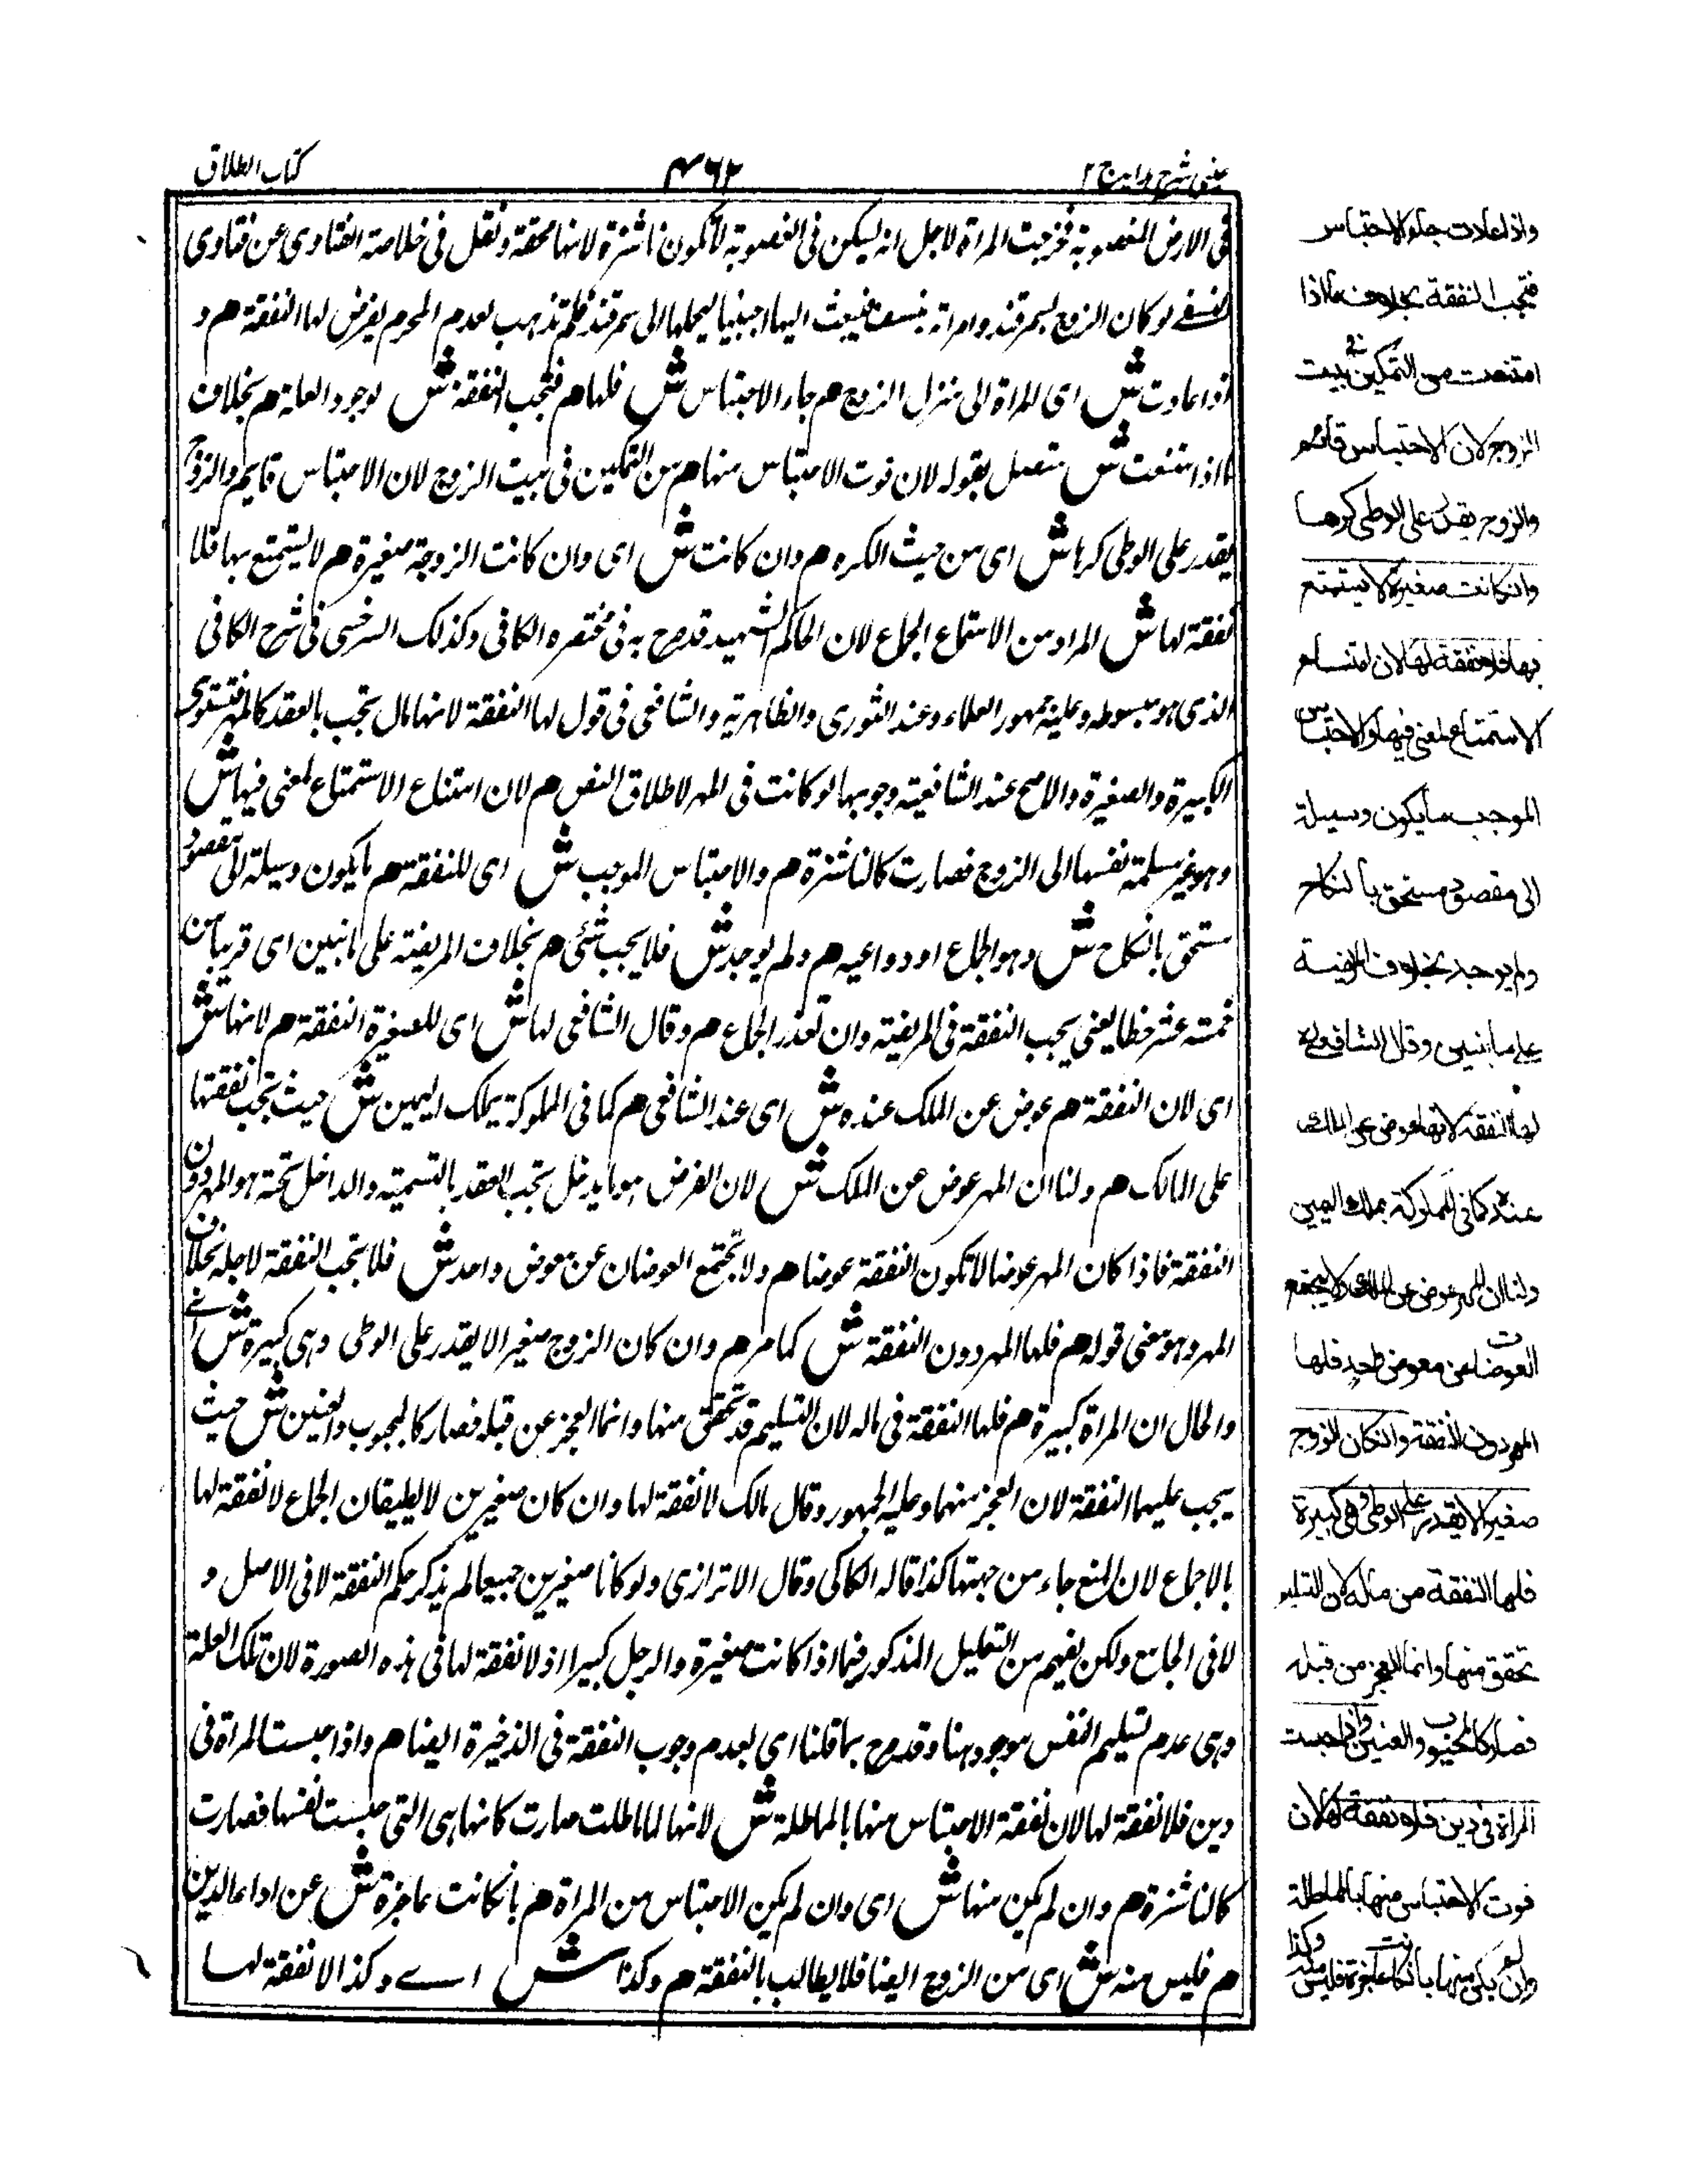 عینی شرح ہدایہ ج ۲
۴۶۲
کتاب الطلاق
فی الارض المغصوبۃ فخرجت المراۃ لاجل انہ یسکن فی المغصوبۃ لا تکون ناشزۃ لانہا محقۃ ونقل فی خلاصۃ الفتاوی عن فتاوی
النسفے لو کان الزوج بسمرقند وامراتہ بنسف فبعث الیہا اجنبیا لیحملہا الی سمرقند فلم تذہب لعدم المحرم یفرض لہا النفقۃ هم و
اذا عادت ش ای المراۃ الی منزل الزوج هم جاء الاحتباس ش فلہا هم فتجب النفقۃ ش لوجود العلۃ هم بخلاف
ما اذا امتنعت ش متصل بقولہ لان فوت الاحتباس منہا هم من التمکین فی بیت الزوج لان الاحتباس قایم والزوج
یقدر علی الوطی کرہا ش ای من حیث الکرہ هم وان کانت ش ای وان کانت الزوجۃ صغیرۃ هم لا یستمتع بہا فلا
نفقۃ لہا ش المراد من الاستمتاع الجماع لان الحاکم الشہید قد صرح بہ فی مختصرہ الکافی وکذلک السرخسی فی شرح الکافی
الذی ہو مبسوطہ وعلیہ جمہور العلماء وعند الثوری والظاہریۃ والشافعی فی قول لہا النفقۃ لانہا مال تجب بالعقد کالمہر فتستوی
الکبیرۃ والصغیرۃ والاصح عند الشافعیۃ وجوبہا لو کانت فی المہد لاطلاق النص هم لان امتناع الاستمتاع لمعنی فیہا ش
وہو غیر مسلمۃ نفسہا الی الزوج فصارت کالناشزۃ هم والاحتباس الموجب ش ای للنفقۃ هم ما یکون وسیلۃ الی مقصود
مستحق بالنکاح ش وہو الجماع او دواعیہ هم ولم یوجد ش فلا یجب شئی هم بخلاف المریضۃ علی ما نبین ای قریبا من
خمسۃ عشر خطا یعنی یجب النفقۃ فی المریضۃ وان تعذر الجماع هم وقال الشافعی لہا ش ای للصغیرۃ النفقۃ هم لانہا ش
ای لان النفقۃ هم عوض عن الملک عندہ ش ای عند الشافعی هم کما فی المملوکۃ بملک الیمین ش حیث تجب نفقتہا
علی المالک هم ولنا ان المہر عوض عن الملک ش لان العوض ہو ما یدخل تحت العقد بالتسمیۃ والداخل تحتہ ہو المہر دون
النفقۃ فاذا کان المہر عوضا لا تکون النفقۃ عوضا هم ولا تجتمع العوضان عن معوض واحد ش فلا تجب النفقۃ لاجلہ بخلاف
المہر وہو معنی قولہ هم فلہا المہر دون النفقۃ ش کما مر هم وان کان الزوج صغیرا لا یقدر علی الوطی وہی کبیرۃ ش اے
والحال ان المراۃ کبیرۃ هم فلہا النفقۃ فی مالہ لان التسلیم قد تحقق منہا وانما العجز عن قبلہ فصار کالمجبوب والعنین ش حیث
یجب علیہما النفقۃ لان العجز منہما وعلیہ الجمہور وقال مالک لا نفقۃ لہا وان کان صغیرین لا یطیقان الجماع لا نفقۃ لہا
بالاجماع لان المنع جاء من جہتہا کذا قالہ الکاکی وقال الاترازی ولو کانا صغیرین جمیعا لم یذکر حکم النفقۃ لا فی الاصل و
لا فی الجامع ولکن یفہم من التعلیل المذکور فیما اذا کانت صغیرۃ والرجل کبیرا اذ لا نفقۃ لہا فی ہذہ الصورۃ لان تلک العلۃ
وہی عدم تسلیم النفس موجود ہنا وقد صرح بما قلنا ای بعدم وجوب النفقۃ فی الذخیرۃ ایضا هم واذا حبست المراۃ فی
دین فلا نفقۃ لہا لان نفقۃ الاحتباس منہا بالمماطلۃ ش لانہا لما ماطلت صارت کانہا ہی التی حبست نفسہا فصارت
کالناشزۃ هم وان لم یکن منہا ش ای وان لم یکن الاحتباس من المراۃ هم بان کانت عاجزۃ ش عن اداء الدین
هم فلیس منہ ش ای من الزوج ایضا فلا یطالب بالنفقۃ هم وکذا ش اے وکذا لا نفقۃ لہا
واذا عادت جاء الاحتباس
فتجب النفقة بخلاف ما اذا
امتنعت من التمكين في بيت
الزوج لان الاحتباس قائم
والزوج يقدر على الوطى كرها
وان كانت صغيرة لا يستمتع
بها فلا نفقة لها لان امتناع
الاستمتاع لمعنى فيها والاحتباس
الموجب ما يكون وسيلة
الى مقصود مستحق بالنكاح
ولم يوجد بخلاف المريضة
على ما نبين وقال الشافعي له
لها النفقة لانها عوض عن الملك
عنده كما في المملوكة بملك اليمين
ولنا ان المهر عوض عن الملك ولا يجتمع
العوضان عن معوض واحد فلها
المهر دون النفقة وان كان الزوج
صغيرا لا يقدر على الوطى وهي كبيرة
فلها النفقة من ماله لان التسليم
تحقق منها وانما العجز من قبله
فصار كالمجبوب والعنين واذا حبست
المرأة في دين فلا نفقة لها لان
فوت الاحتباس منها بالمماطلة
وان لم يكن منها بان كانت عاجزة فليس منه وكذا